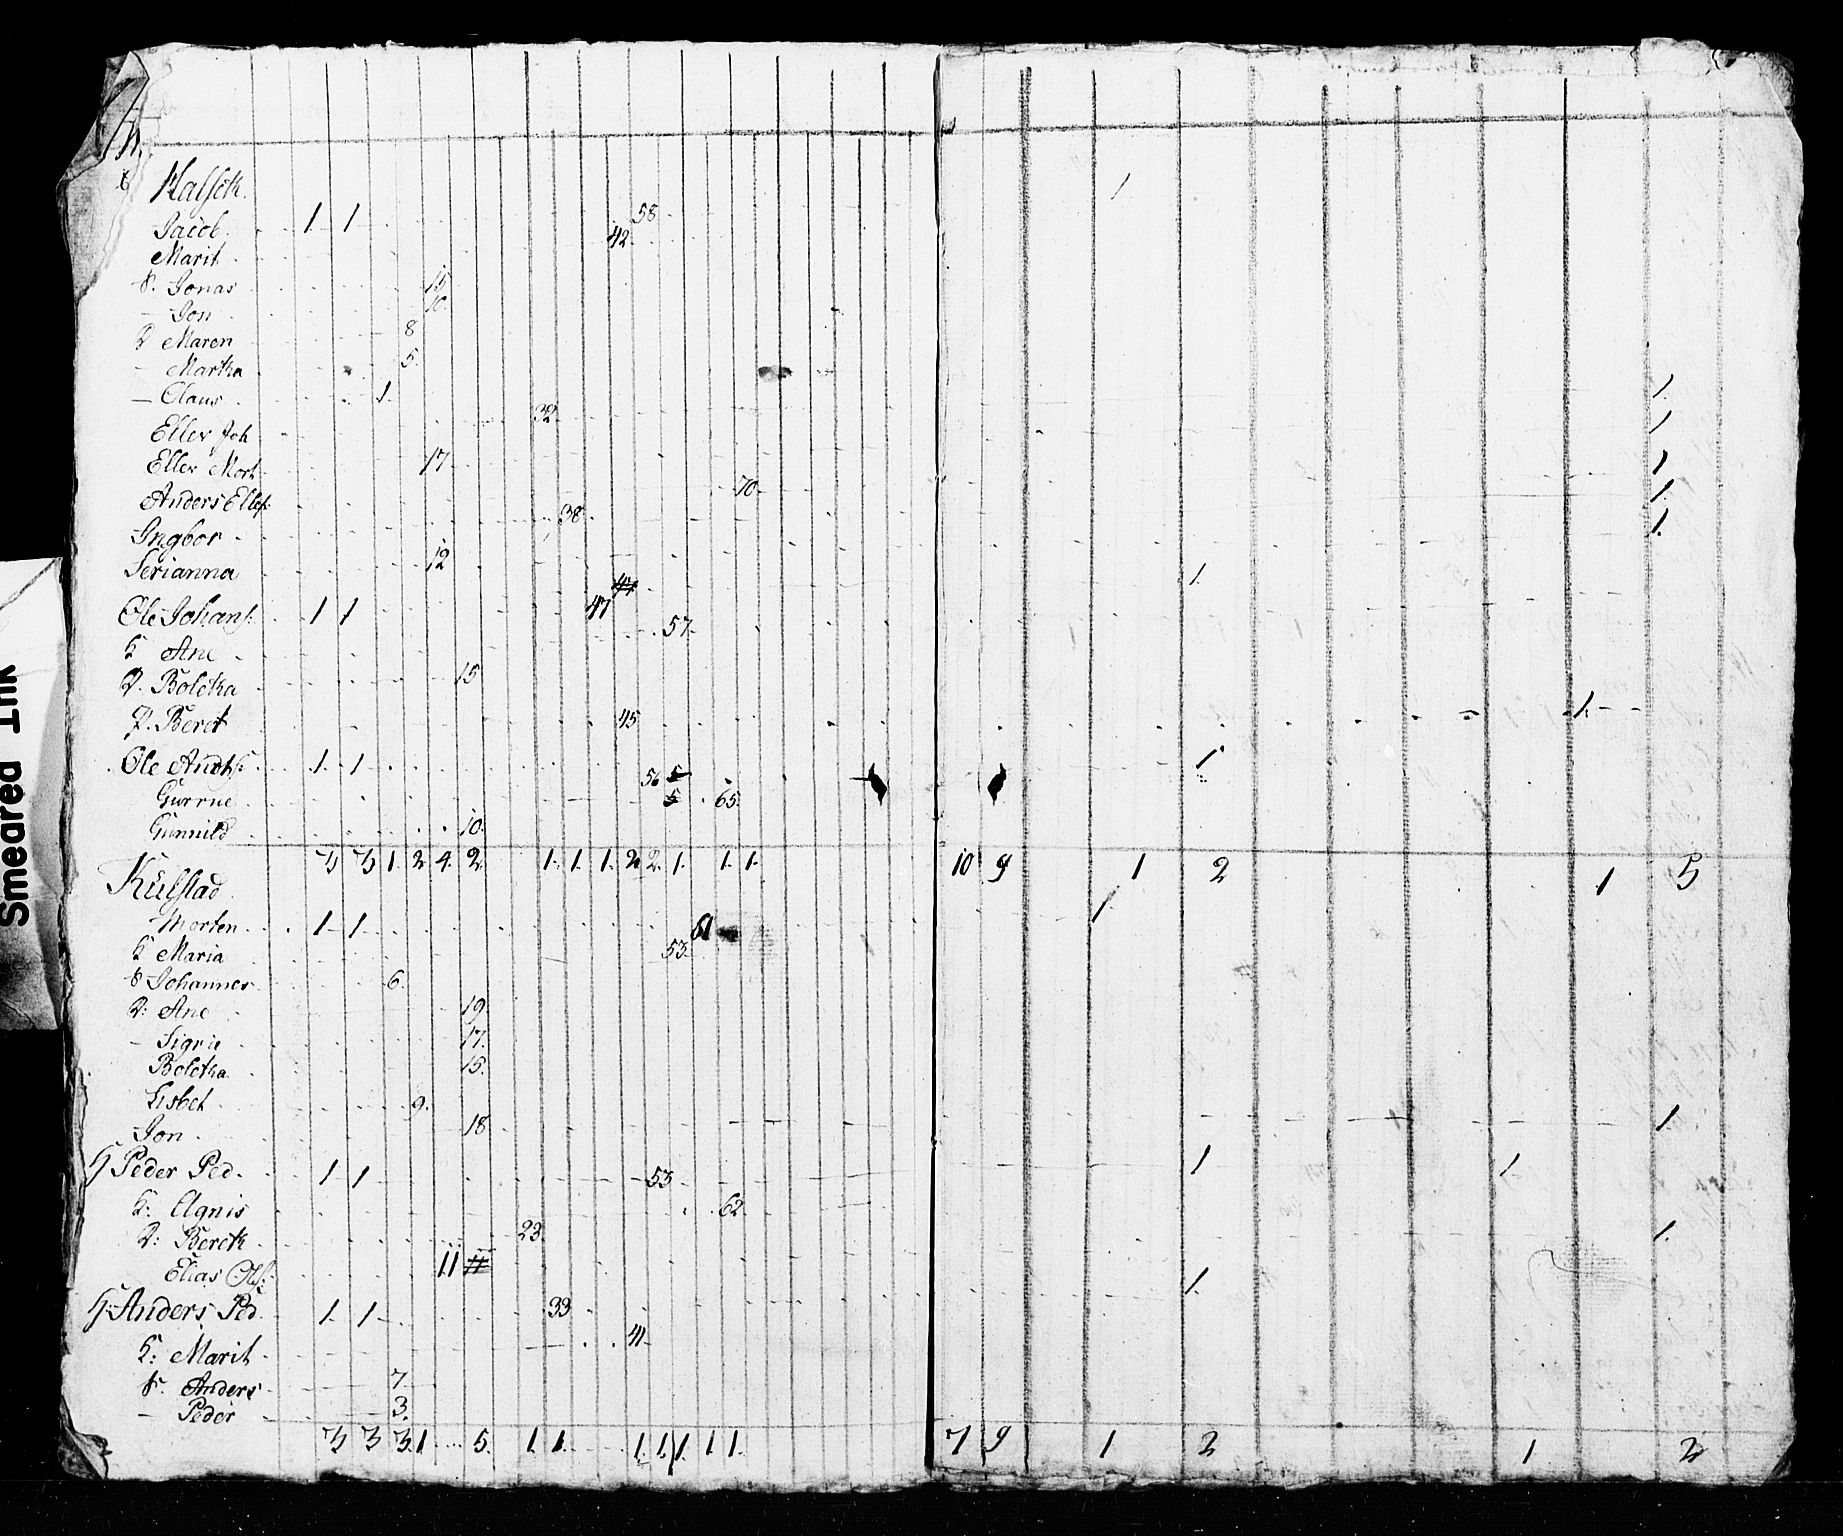 Halset. 1
Jacob. 1 1 58
Marit 42
S. Jonas 15
- Jon 10
D Maren 8
- Martha 5
- Claus 1 1
Eller Joh 32 1
Eller Mort 17 1
Anders Ellefs: 70 1
Ingbor 38 1
Serianna 12
Ole Johans: 1 1 47 44 1
K Ane 57
D. Boletha 15
D. Beret 45 1
Ole Andrs: 1 1 56 5 1
Gurrne 5 65
Gunnild 10
3 3 1 2 4 2 1 1 1 2 2 1 1 1 10 9 1 2 1 5
Külstad
Morten 1 1 61 1
K Maria 53
S Johannes 6
D: Ane 19
- Sigrie 17
Boletha 15
Lisbet 9
Jon 18 1
H Peder Ped. 1 1 53 1 1
K: Agnis 62
D: Bereth 23 1
Elias Ols: 11 11
H: Anders Ped. 1 1 33 1
K: Marit 41
S. Anders 7
- Peder 3
3 3 3 1 5 1 1 1 1 1 1 1 7 9 1 2 1 2
Smeared Ink